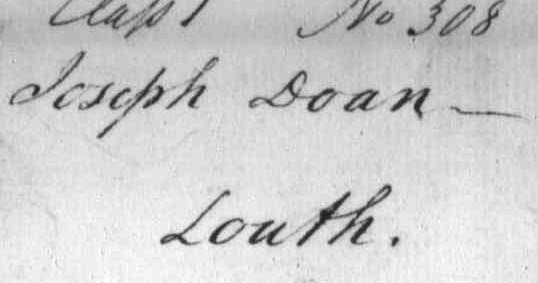 Class 1 No 308
Joseph Doan —
Louth.